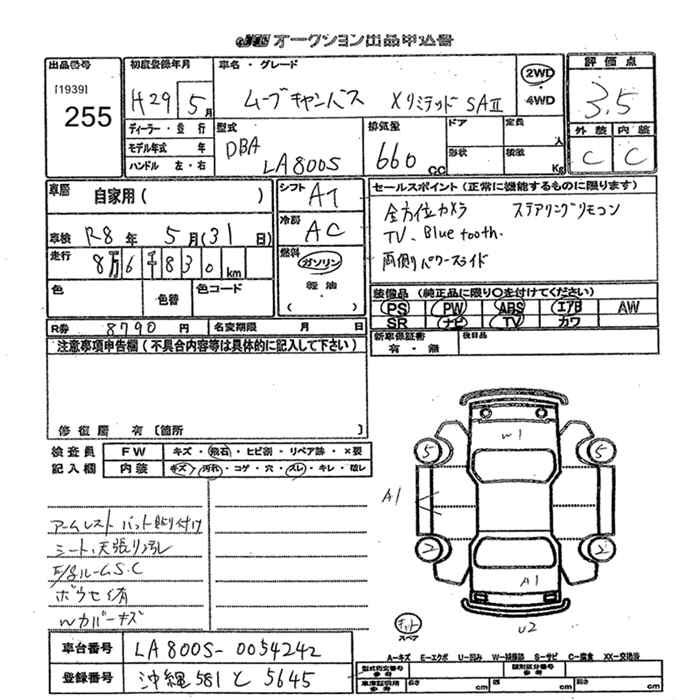 オークション出品申込書
出品番号 初度登録年月 車名・グレード 評価点
[1939] 255
H29 5月 ムーブキャンバス XリミテッドSAⅡ 2WD・4WD 3.5
ディーラー・並行 型式 排気量 ドア 定員 人 外装 内装
モデル年式 年 DBA LA800S 660cc 形状 積載 Kg C C
ハンドル 左・右
車歴 自家用( ) シフト AT セールスポイント(正常に機能するものに限ります)
車検 R8年 5月(31日) 冷房 AC 全方位カメラ ステアリングリモコン
TV. Bluetooth.
走行 8万6千830km 燃料 ガソリン・軽油 両側パワースライド
色 色替 色コード 装備品(純正品に限り○を付けてください)
PS PW ABS エアB AW
R券 8790円 名変期限 月 日 SR ナビ TV カワ
注意事項申告欄(不具合内容等は具体的に記入して下さい) 新車保証書 有・無 後日品
修復歴 有〔箇所 〕
検査員 FW キズ・飛石・ヒビ割・リペア跡・×要
記入欄 内装 キズ・汚れ・コゲ・穴・スレ・キレ・破レ
W1
5 5
A1
2 2
A1
U2
スペア
アームレスト パット貼り付け
シート、天張り汚れ
ルームS.C
Wカバーキズ
A=キズ E=エクボ U=凹み W=補修跡 S=サビ C=腐食 XX=交換済
車台番号 LA800S-0054242
登録番号 沖縄 581 と 5645
型式指定番号 参考 類別区分番号 参考
車庫証明用 参考 長さ cm 幅 cm 高さ cm